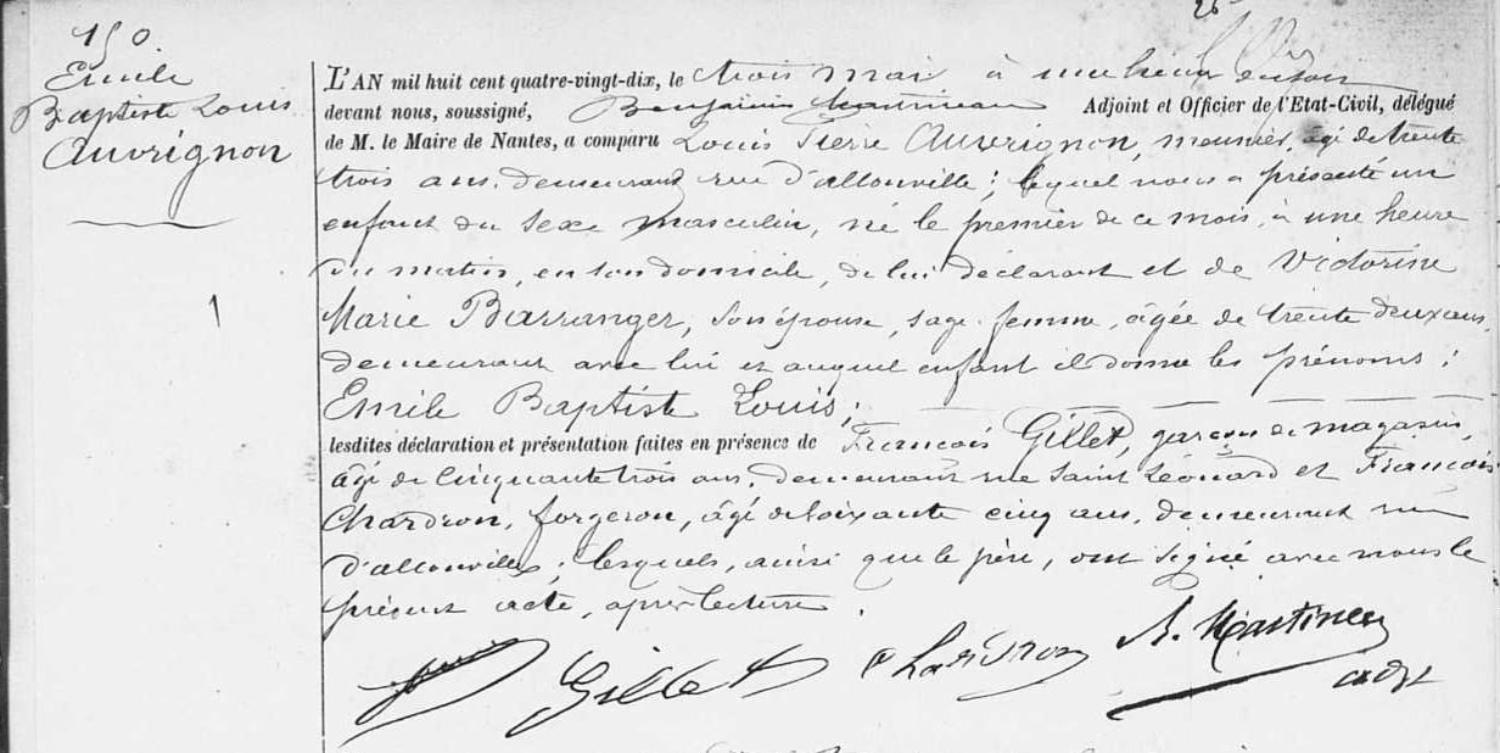 150.
Emile
Baptiste Louis
Auvrignon
L'AN mil huit cent quatre-vingt-dix, le trois mai à une heure du soir
devant nous, soussigné, Benjamin Martineau Adjoint et Officier de l'Etat-Civil, délégué
de M. le Maire de Nantes, a comparu Louis Pierre Auvrignon, meunier, âgé de trente
trois ans, demeurant rue d'allonville; lequel nous a présenté un
enfant du sexe masculin, né le premier de ce mois, à une heure
du matin, en son domicile, de lui déclarant et de Victorine
Marie Barranger, son épouse, sage-femme, âgée de trente deux ans,
demeurant avec lui et auquel enfant il donne les prénoms:
Emile Baptiste Louis;
lesdites déclaration et présentation faites en présence de François Gillet, garçon de magasin,
âgé de cinquante trois ans, demeurant rue Saint Léonard et François
Chardron, forgeron, âgé de soixante cinq ans, demeurant rue
d'allonville; lesquels, ainsi que le père, ont signé avec nous le
présent acte, après lecture.
Gillet Chardron B. Martineau
adjt